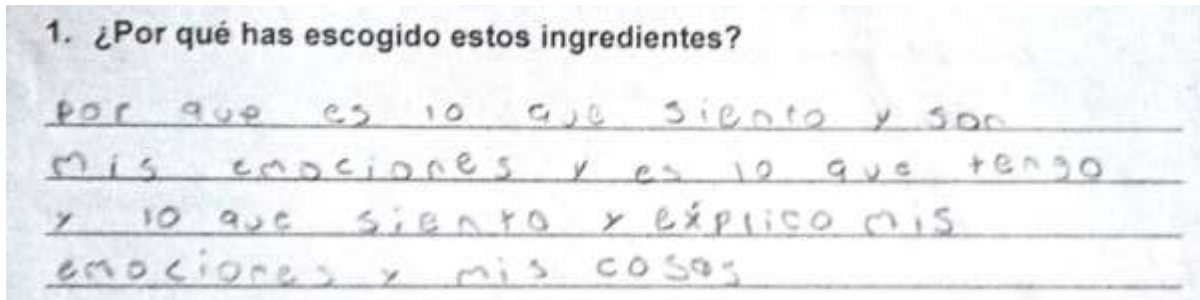 1. ¿Por qué has escogido estos ingredientes?
por que es lo que siento y son
mis emociones y es lo que tengo
y lo que siento y éxplico mis
emociones y mis cosas